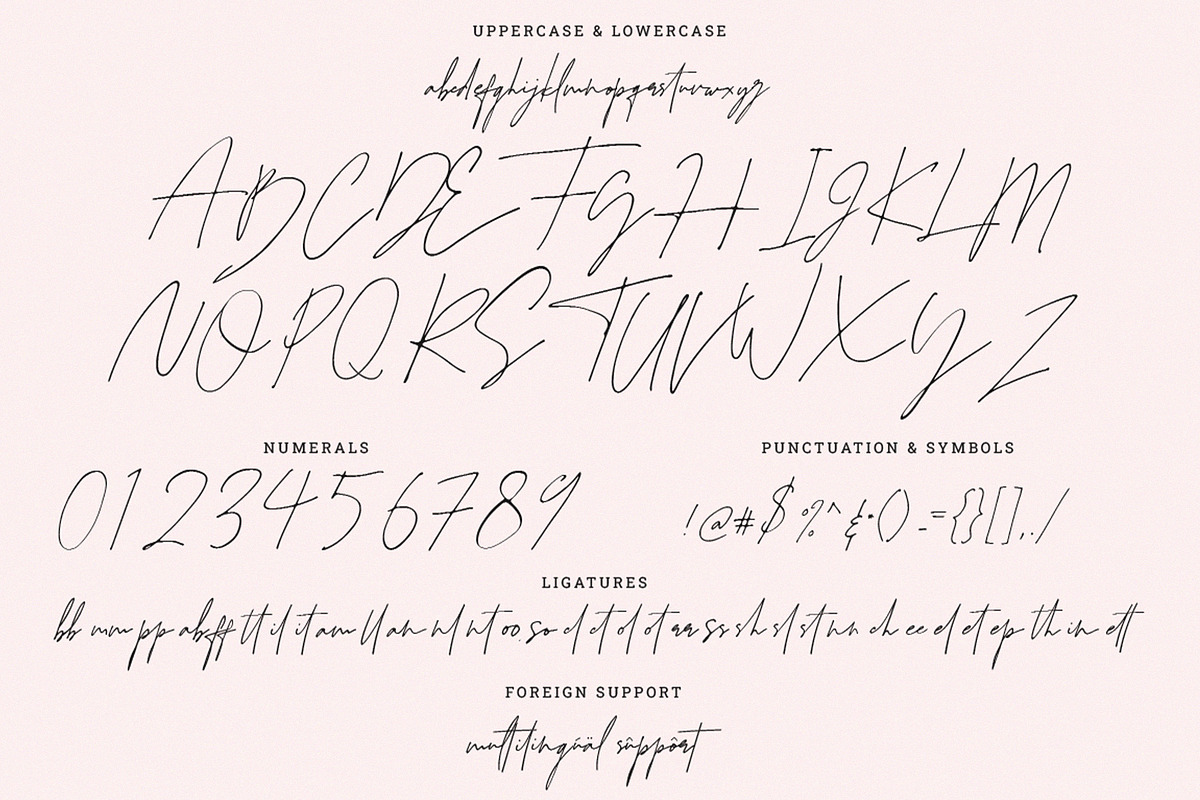 UPPERCASE & LOWERCASE
abcdefghijklmnopqrstuvwxyz
ABCDEFGHIJKLM
NOPQRSTUVWXYZ
NUMERALS
0123456789
PUNCTUATION & SYMBOLS
!@#$%^&*()-={}[],./
LIGATURES
bb mm pp ab ff tt il it am ll an nl nt oo so cl ct ol ot ar ss sh sl st nn ch ee el et ep th in ett
FOREIGN SUPPORT
multilingúäl sûppôrt